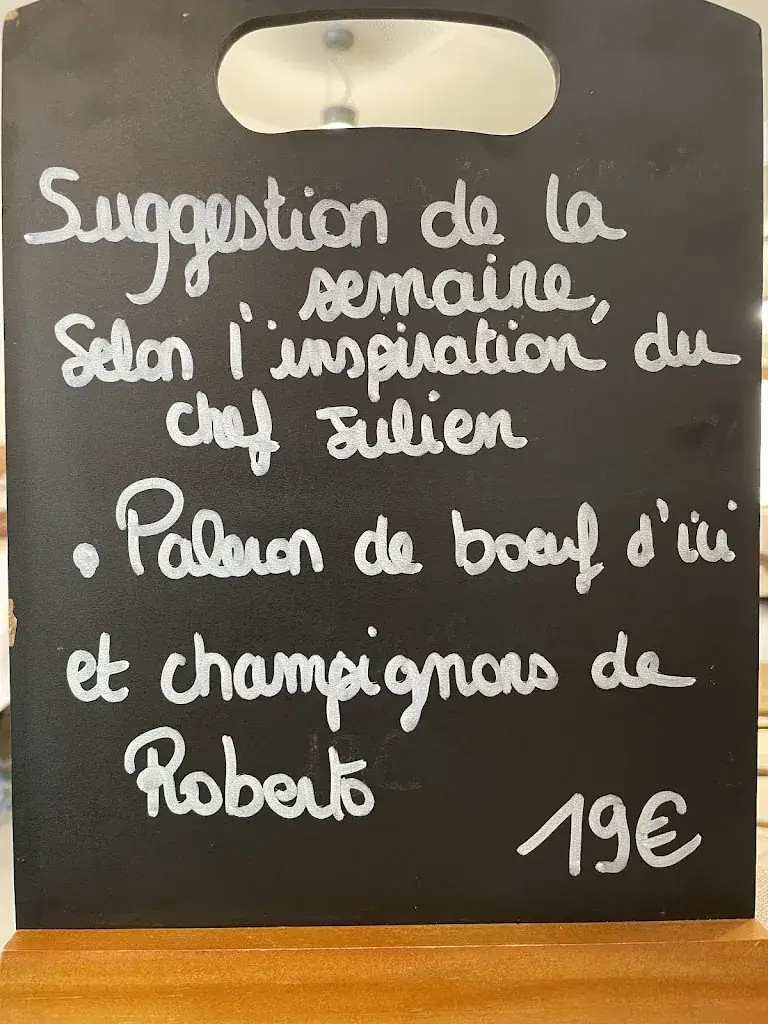 Suggestion de la
semaine,
Selon l'inspiration du
chef Julien
• Paleron de boeuf d'ici
et champignons de
Roberto
19€